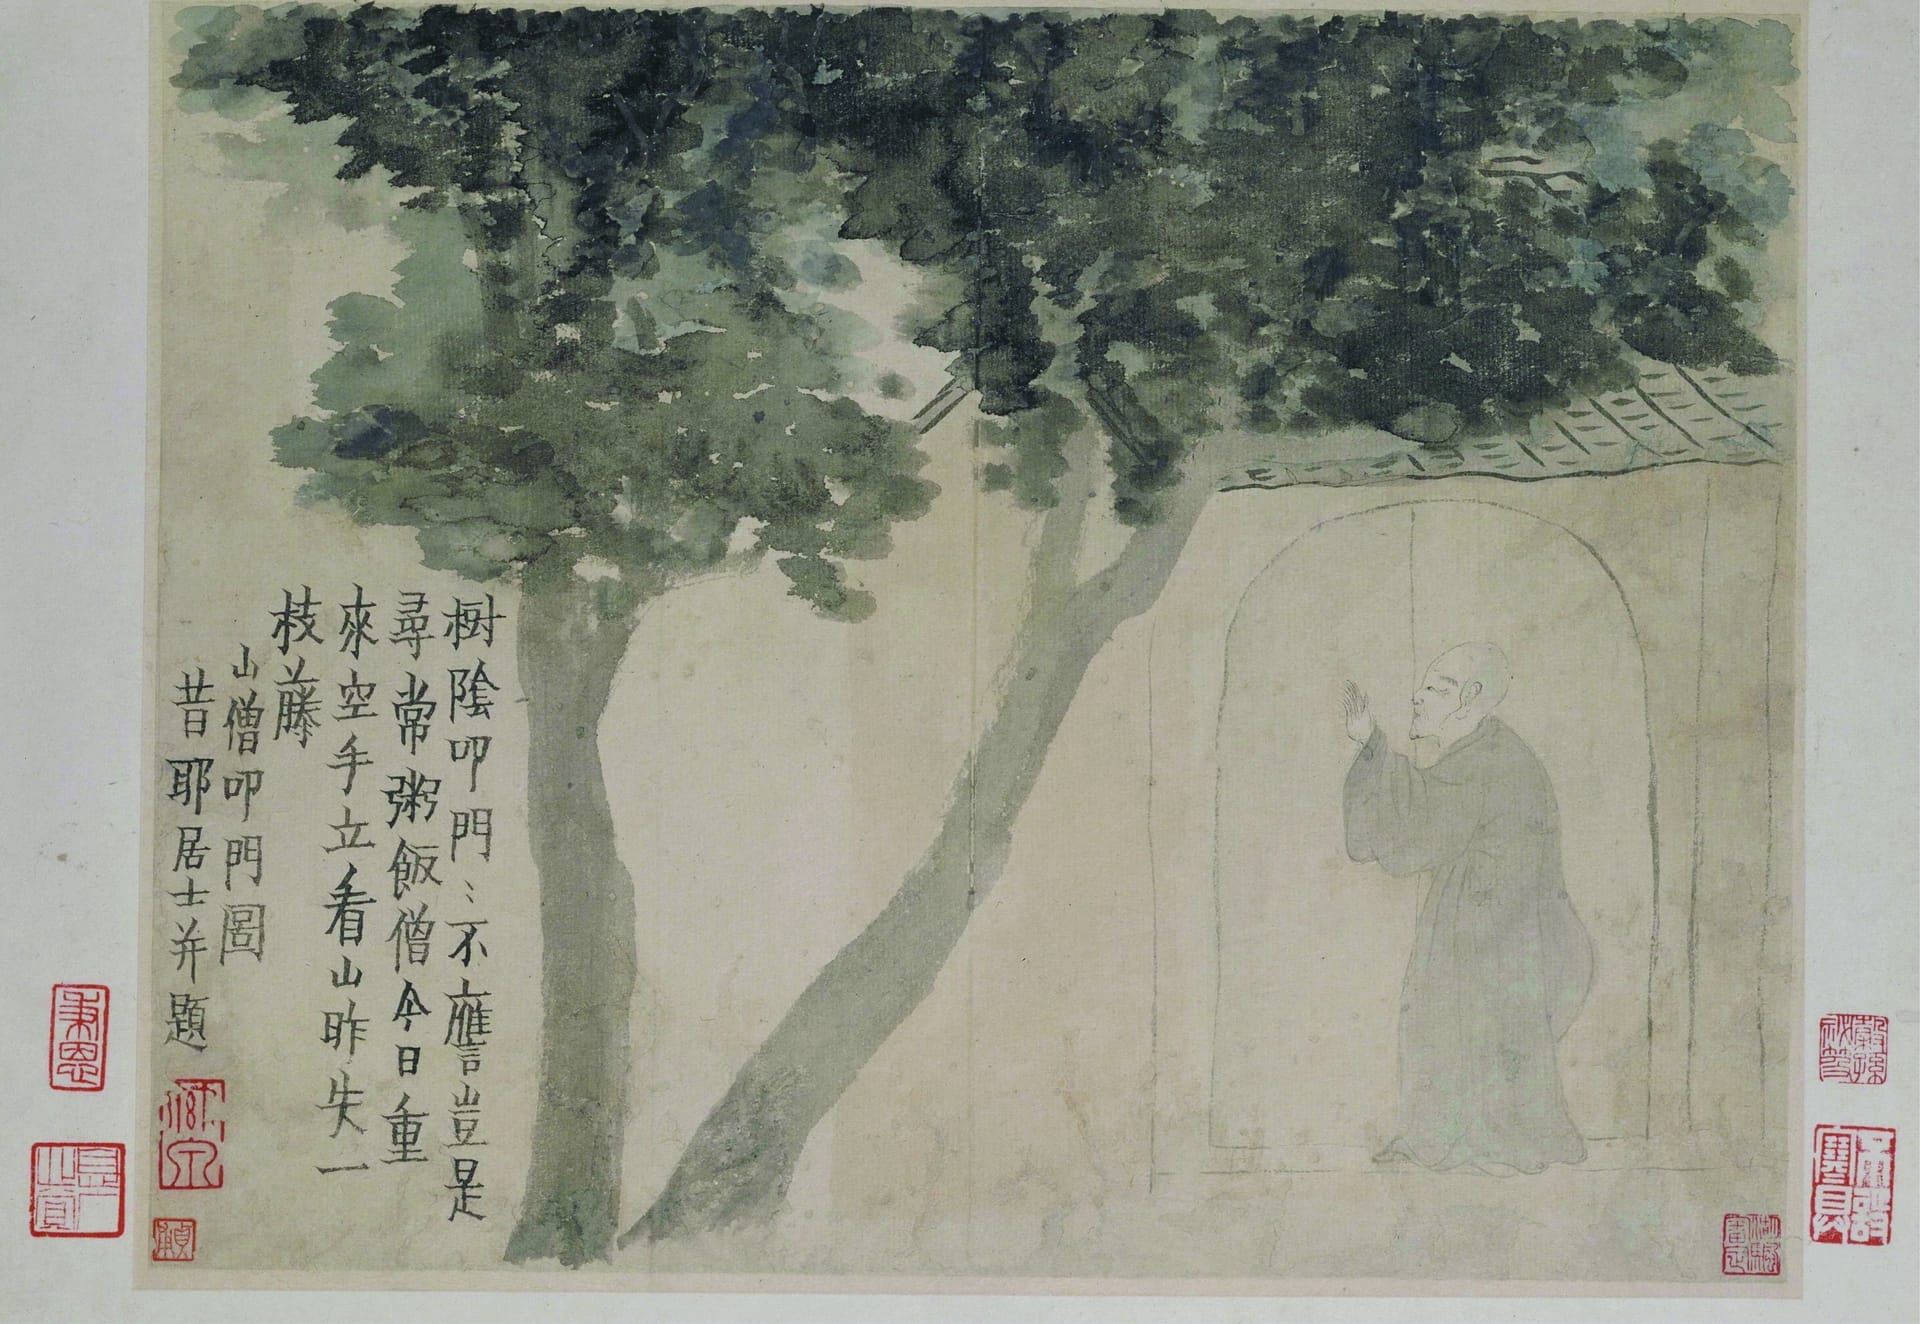 樹陰叩門⺀不應豈是
尋常粥飯僧今日重
來空手立看山昨失一
枝藤
山僧叩門圖
昔耶居士并題
秉恩